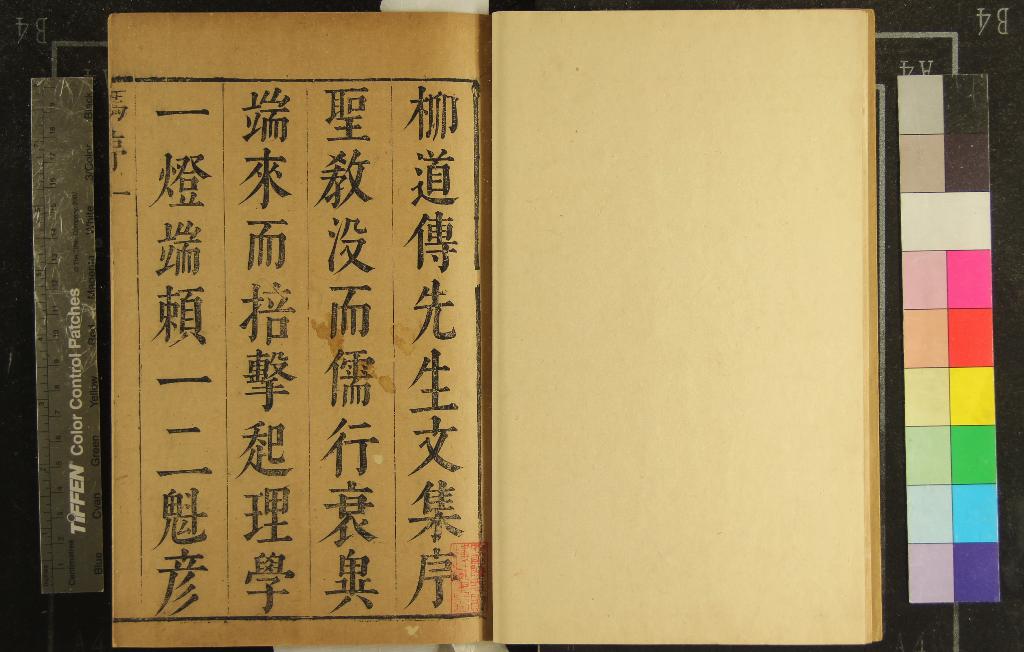 柳道傳先生文集序
聖敎没而儒行衰異
端來而掊擊起理學
一燈端頼一二魁彦
馮序 一
TIFFEN Color Control Patches
Blue Cyan Green Yellow Red Magenta White 3/Color Black
Centimetres
B4
A4
B4